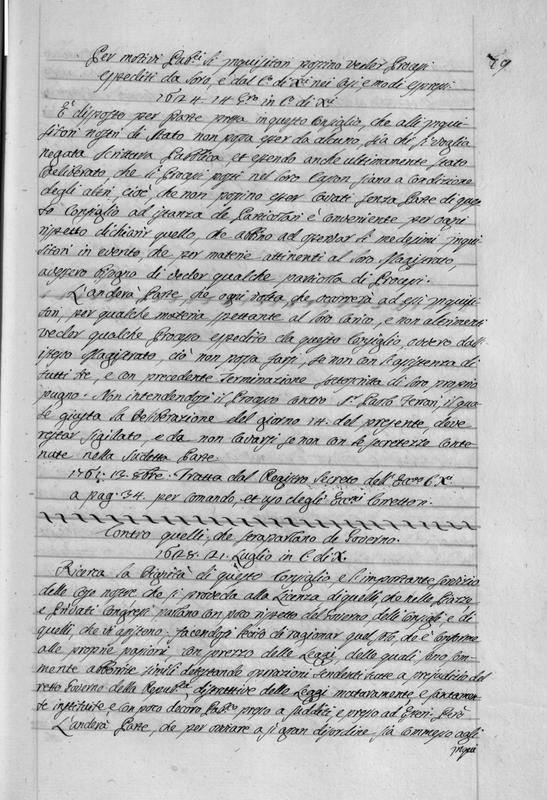 79
Per motivi Pub.ci li Inquisitori possino veder Processi
espediti da loro, e dal C.o di X.ci nei casi, e modi espressi
1624. 14. in C.o di X.ci
È disposto per parte presa in questo Consiglio, che alli Inqui-
sitori nostri di Stato non possa esser da alcuno, sia chi si voglia
negata Scrittura Publica, et essendo anche ultimamente stato
deliberato, che li Processi posti nel loro Casson siano a condizione
degli altri, cioè, che non possino esser cavati senza Parte di que-
sto Consiglio ad istanza de Particolari è conveniente per ogni
rispetto dichiarir quello, che abbino ad osservar li medesimi Inqui-
sitori in evento, che per materie attinenti al loro Magistrato,
avessero bisogno di veder qualche particola di Processi.
L'anderà Parte, che ogni volta che occorrerà ad essi Inquisi-
tori, per qualche materia spettante al loro carico, e non altrimenti
veder qualche Processo espedito da questo Consiglio, ovvero dall'
istesso Magistrato, ciò non possa farsi, se non con l'assistenza di
tutti tre, e con precedente Terminazione sottoscritta di loro proprio
pugno. Non intendendosi il Processo contro Ferrari il qua-
le giusta la Deliberazione del giorno 14. del presente, deve
restar sigilato, e da non cavarsi se non con le strettezze conte-
nute nella sudetta Parte.
1761. 13. Tratta dal Registro Secreto dell' Ecc.mo C. X.ci
a pag. 34. per comando, et uso degl' Ecc.mi Correttori.
Contro quelli, che straparlano de Governo.
1628. 21. Luglio in C. di X.
Ricerca la Dignità di questo Consiglio, e l'importante servizio
delle cose nostre che si proveda alla Licenza di quelli, che nelle Piazze,
e Privati Congressi parlano con poco rispetto del Governo delli Consigli e di
quelli, che vi assistono, facendosi lecito di ragionar quel, che de è conforme
alle proprie passioni con sprezzo delle Leggi, delle quali, som-
mente abborrite simili detestande operazioni tendenti tutte a pregiudizio del
retto Governo della Republ.ca, distruttive delle Leggi maturamente, e santamen-
te instituite, e con poco decoro Pub.co presso a sudditi, e presso ad Esteri. Però
L'anderà Parte, che per ovviare a sì gran disordine sia commesso agli
Inqui